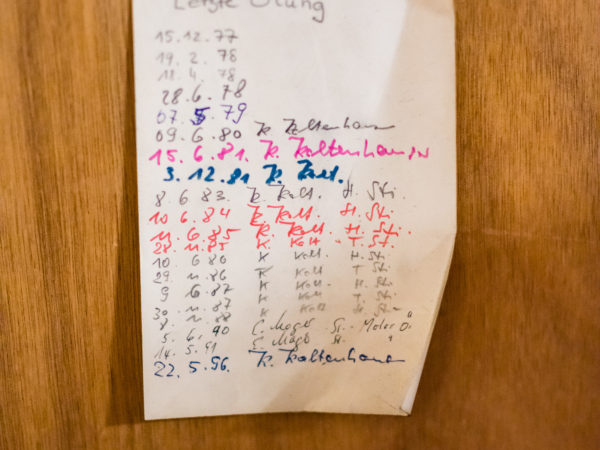 Letzte Ölung
15.12.77
19.2.78
18.4.78
28.6.78
07.5.79
09.6.80 K. Kaltenhauser
15.6.81. K. Kaltenhauser
3.12.81 K. Kalt.
8.6.83. K. Kalt. H. Sti.
10.6.84 K. Kalt. H. Sti.
11.6.85 K. Kalt. H. Sti.
28.11.85 K. Kalt T. Sti.
10.6.86 K Kalt H. Sti
29.11.86 K Kalt T Sti
9 6.87 K Kalt H Sti
30.11.87 K Kalt T Sti
8. 11.88 K Kalt H Sti
5.6.90 St. Motor Ö.
14.5.91 St. "
22.5.96. K. Kaltenhauser